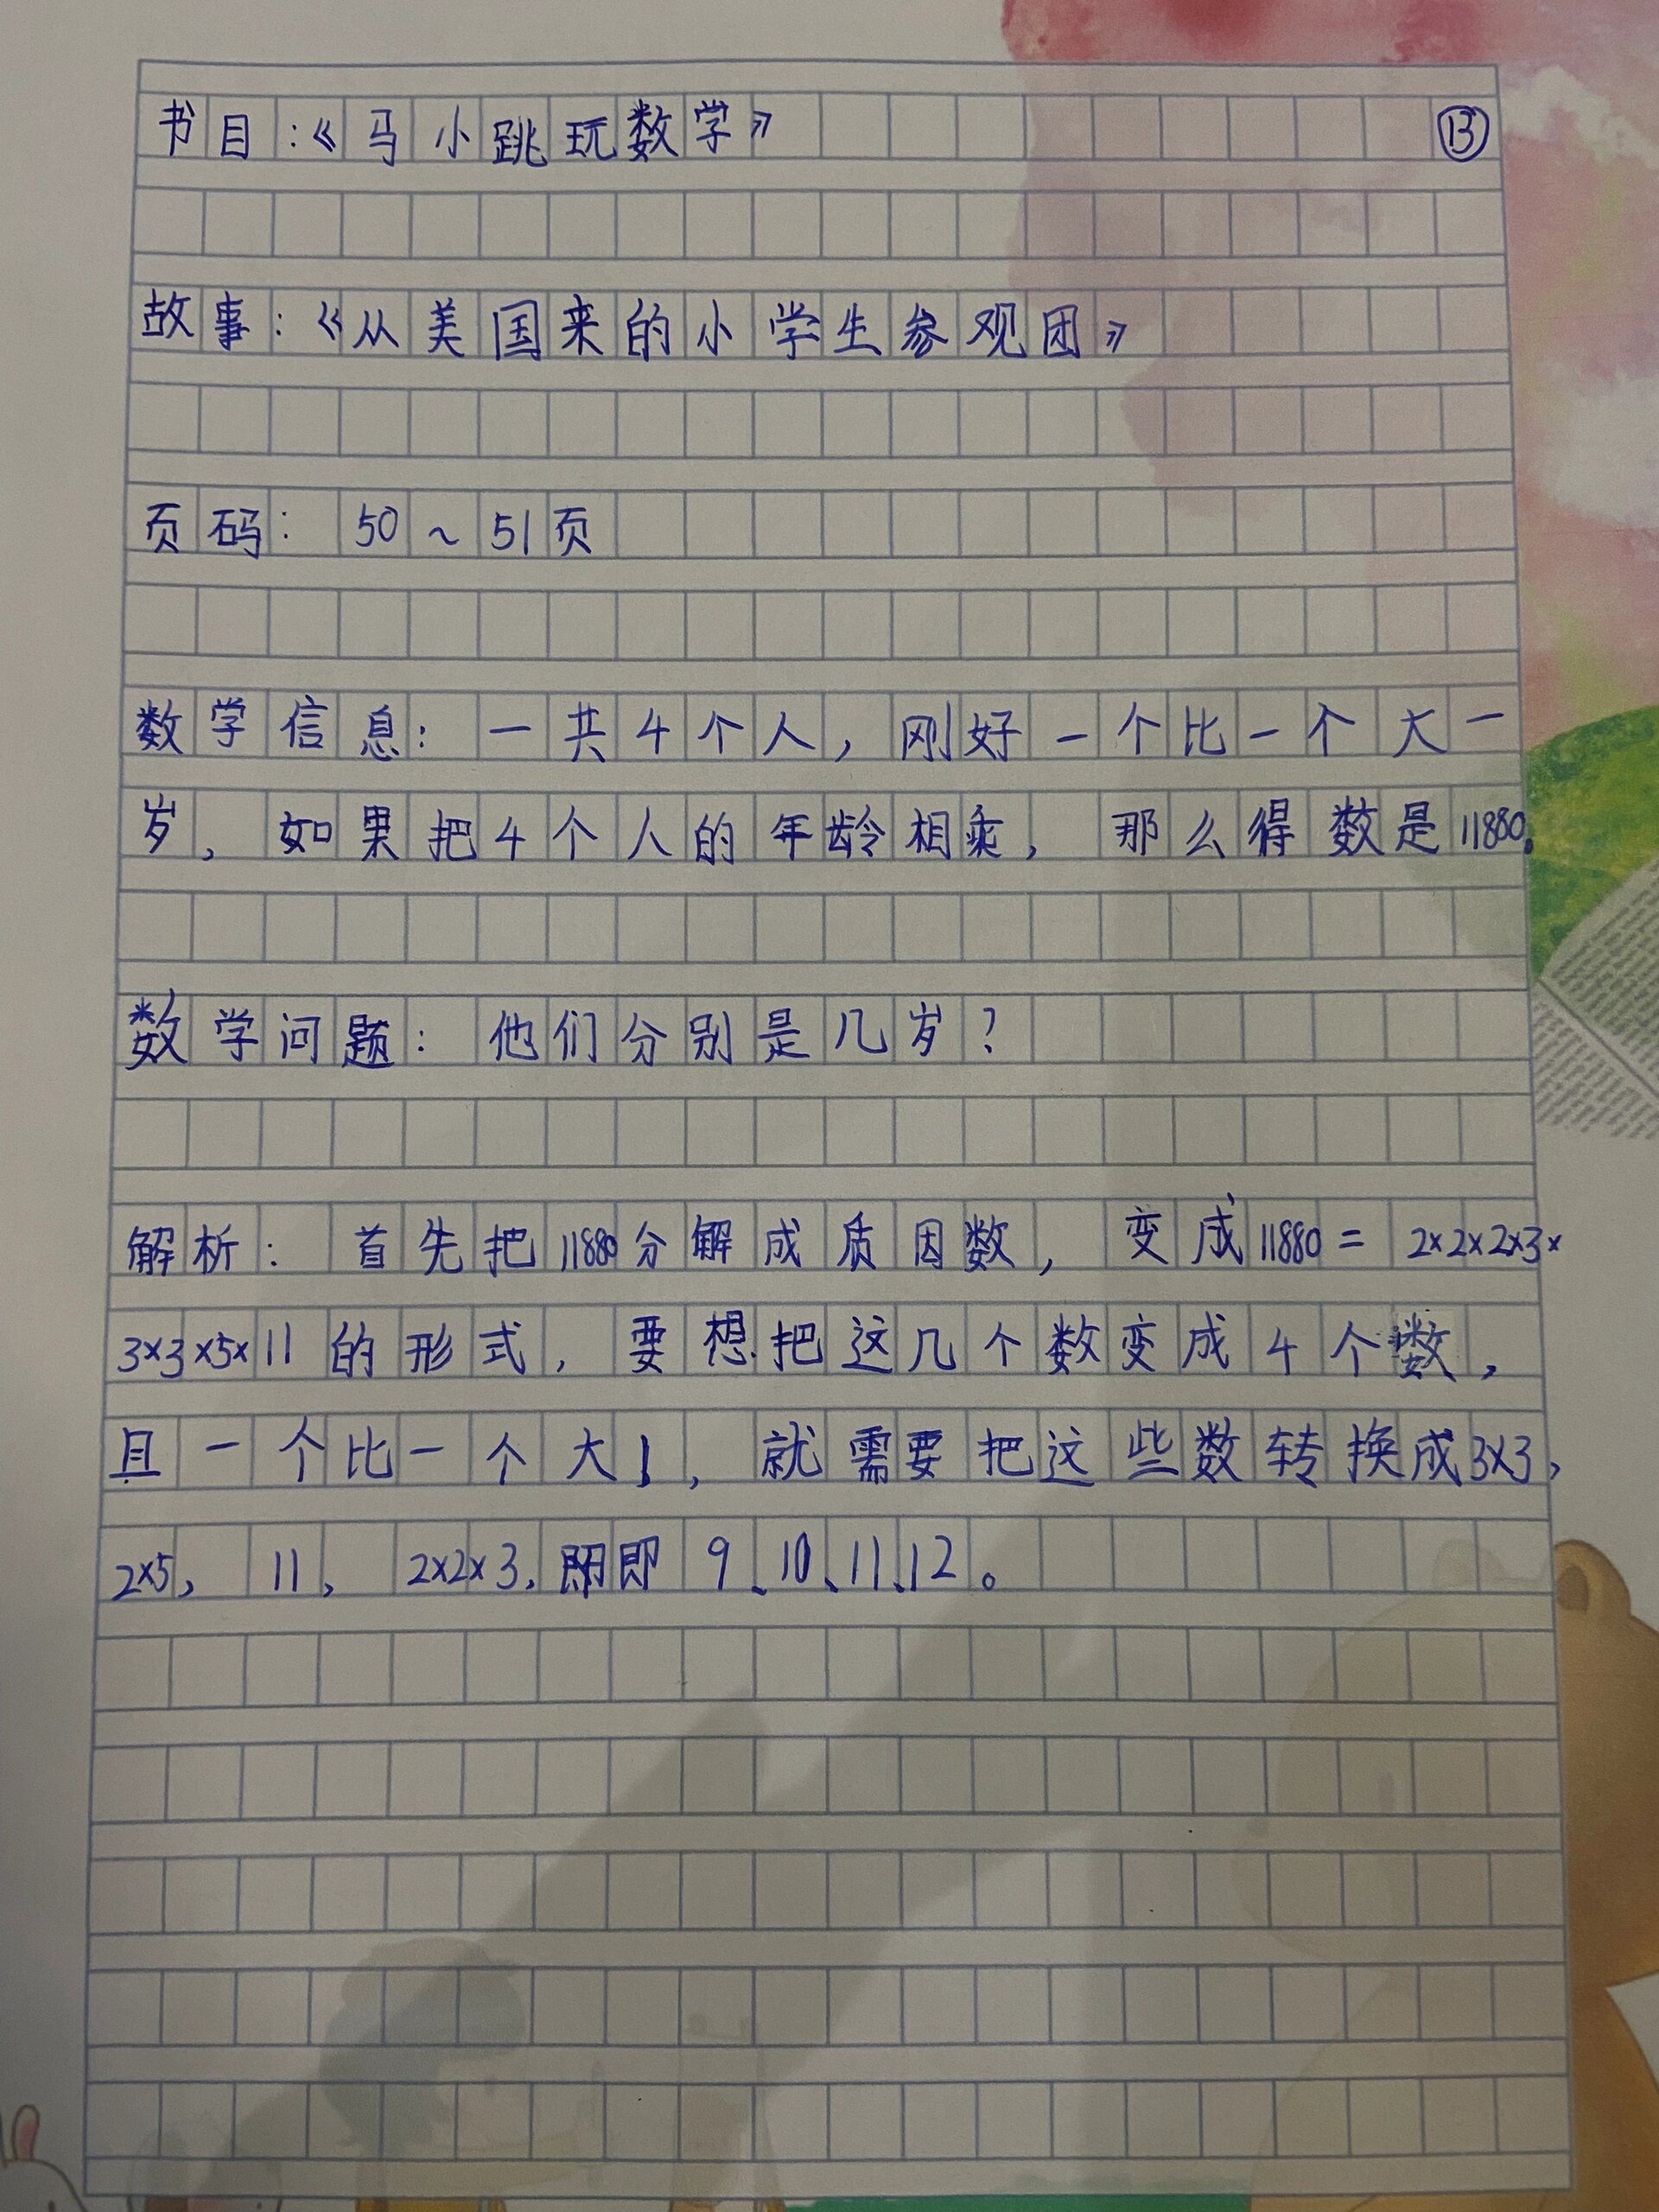 书目:《马小跳玩数学》 ⑬
故事:《从美国来的小学生参观团》
页码: 50~51页
数学信息: 一共4个人,刚好一个比一个大一
岁,如果把4个人的年龄相乘,那么得数是11880。
数学问题: 他们分别是几岁?
解析: 首先把11880分解成质因数,变成11880=2×2×2×3×
3×3×5×11的形式,要想把这几个数变成4个数,
且一个比一个大1,就需要把这些数转换成3×3,
2×5,11,2×2×3,即 9、10、11、12。